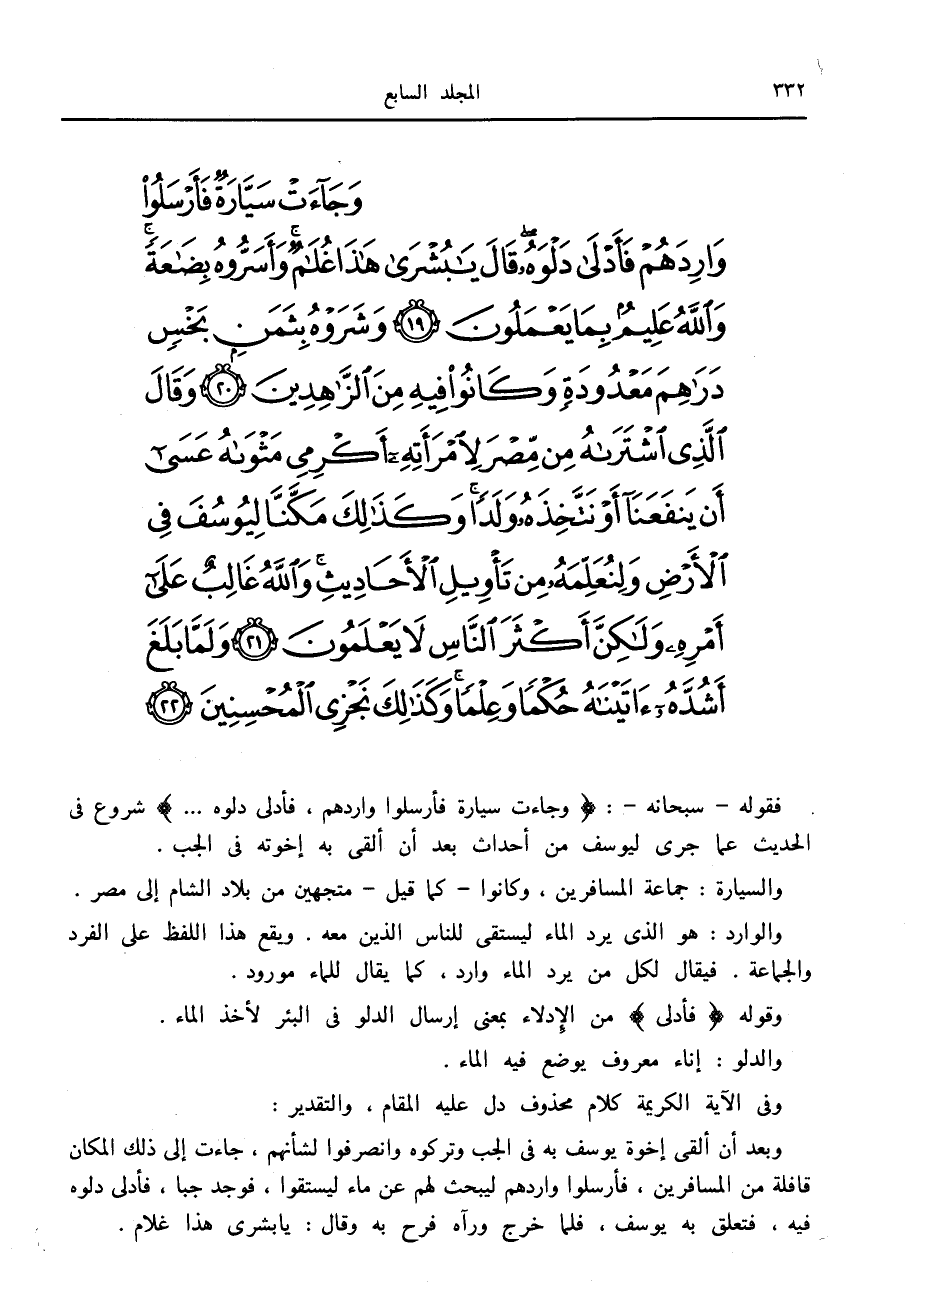 ٣٣٢
المجلد السابع
وَجَآءَتْ سَيَّارَةٌ فَأَرْسَلُوا۟
وَارِدَهُمْ فَأَدْلَىٰ دَلْوَهُۥ ۖ قَالَ يَـٰبُشْرَىٰ هَـٰذَا غُلَـٰمٌ ۚ وَأَسَرُّوهُ بِضَـٰعَةً ۚ
وَٱللَّهُ عَلِيمٌۢ بِمَا يَعْمَلُونَ ١٩ وَشَرَوْهُ بِثَمَنٍۭ بَخْسٍ
دَرَٰهِمَ مَعْدُودَةٍ وَكَانُوا۟ فِيهِ مِنَ ٱلزَّٰهِدِينَ ٢٠ وَقَالَ
ٱلَّذِى ٱشْتَرَىٰهُ مِن مِّصْرَ لِٱمْرَأَتِهِۦٓ أَكْرِمِى مَثْوَىٰهُ عَسَىٰٓ
أَن يَنفَعَنَآ أَوْ نَتَّخِذَهُۥ وَلَدًا ۚ وَكَذَٰلِكَ مَكَّنَّا لِيُوسُفَ فِى
ٱلْأَرْضِ وَلِنُعَلِّمَهُۥ مِن تَأْوِيلِ ٱلْأَحَادِيثِ ۚ وَٱللَّهُ غَالِبٌ عَلَىٰٓ
أَمْرِهِۦ وَلَـٰكِنَّ أَكْثَرَ ٱلنَّاسِ لَا يَعْلَمُونَ ٢١ وَلَمَّا بَلَغَ
أَشُدَّهُۥٓ ءَاتَيْنَـٰهُ حُكْمًا وَعِلْمًا ۚ وَكَذَٰلِكَ نَجْزِى ٱلْمُحْسِنِينَ ٢٢
فقوله – سبحانه – : ﴿ وجاءت سيارة فأرسلوا واردهم ، فأدلى دلوه ... ﴾ شروع فى
الحديث عما جرى ليوسف من أحداث بعد أن ألقى به إخوته فى الجب .
والسيارة : جماعة المسافرين ، وكانوا – كما قيل – متجهين من بلاد الشام إلى مصر .
والوارد : هو الذى يرد الماء ليستقى للناس الذين معه . ويقع هذا اللفظ على الفرد
والجماعة . فيقال لكل من يرد الماء وارد ، كما يقال للماء مورود .
وقوله ﴿ فأدلى ﴾ من الإدلاء بمعنى إرسال الدلو فى البئر لأخذ الماء .
والدلو : إناء معروف يوضع فيه الماء .
وفى الآية الكريمة كلام محذوف دل عليه المقام ، والتقدير :
وبعد أن ألقى إخوة يوسف به فى الجب وتركوه وانصرفوا لشأنهم ، جاءت إلى ذلك المكان
قافلة من المسافرين ، فأرسلوا واردهم ليبحث لهم عن ماء ليستقوا ، فوجد جبا ، فأدلى دلوه
فيه ، فتعلق به يوسف ، فلما خرج ورآه فرح به وقال : يابشرى هذا غلام .